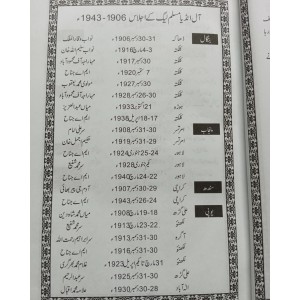 آل انڈیا مسلم لیگ کے اجلاس 1906-1943ء
بنگال ڈھاکہ 30-31 دسمبر 1906ء نواب وقار الملک
کلکتہ 3-4 مارچ 1916ء نواب سلیم اللہ خان
کلکتہ 30 دسمبر 1917ء
کلکتہ 7 ستمبر 1920ء ایم اے جناح
کلکتہ 30 دسمبر 1927ء مولوی محمد یعقوب
کلکتہ 1928ء
ہوڑہ اکتوبر 1933ء میاں عبدالعزیز
کلکتہ 17-18 اپریل 1938ء ایم اے جناح
پنجاب امرتسر 30-31 دسمبر 1908ء سر علی امام
امرتسر 29-31 دسمبر 1919ء حکیم اجمل خان
لاہور 24-25 1924ء ایم اے جناح
لاہور 1929ء سر محمد شفیع
لاہور 22-24 1940ء ایم اے جناح
سندھ کراچی 29-30 دسمبر 1907ء آدم جی پیر بھائی
کراچی 24-26 دسمبر 1943ء ایم اے جناح
یوپی علی گڑھ 18-19 مارچ 1906ء میاں محمد شاہ دین
لکھنؤ 22-23 مارچ 1913ء سر محمد شفیع
آگرہ 30-31 دسمبر 1913ء سر ابراہیم رحمت اللہ
لکھنؤ 30-31 دسمبر 1916ء ایم اے جناح
لکھنؤ 31 مارچ اپریل 1923ء غلام محمد بھرگری
علی گڑھ 30-31 دسمبر 1925ء سر عبدالرحیم
الہ آباد 28-30 دسمبر 1930ء علامہ اقبال